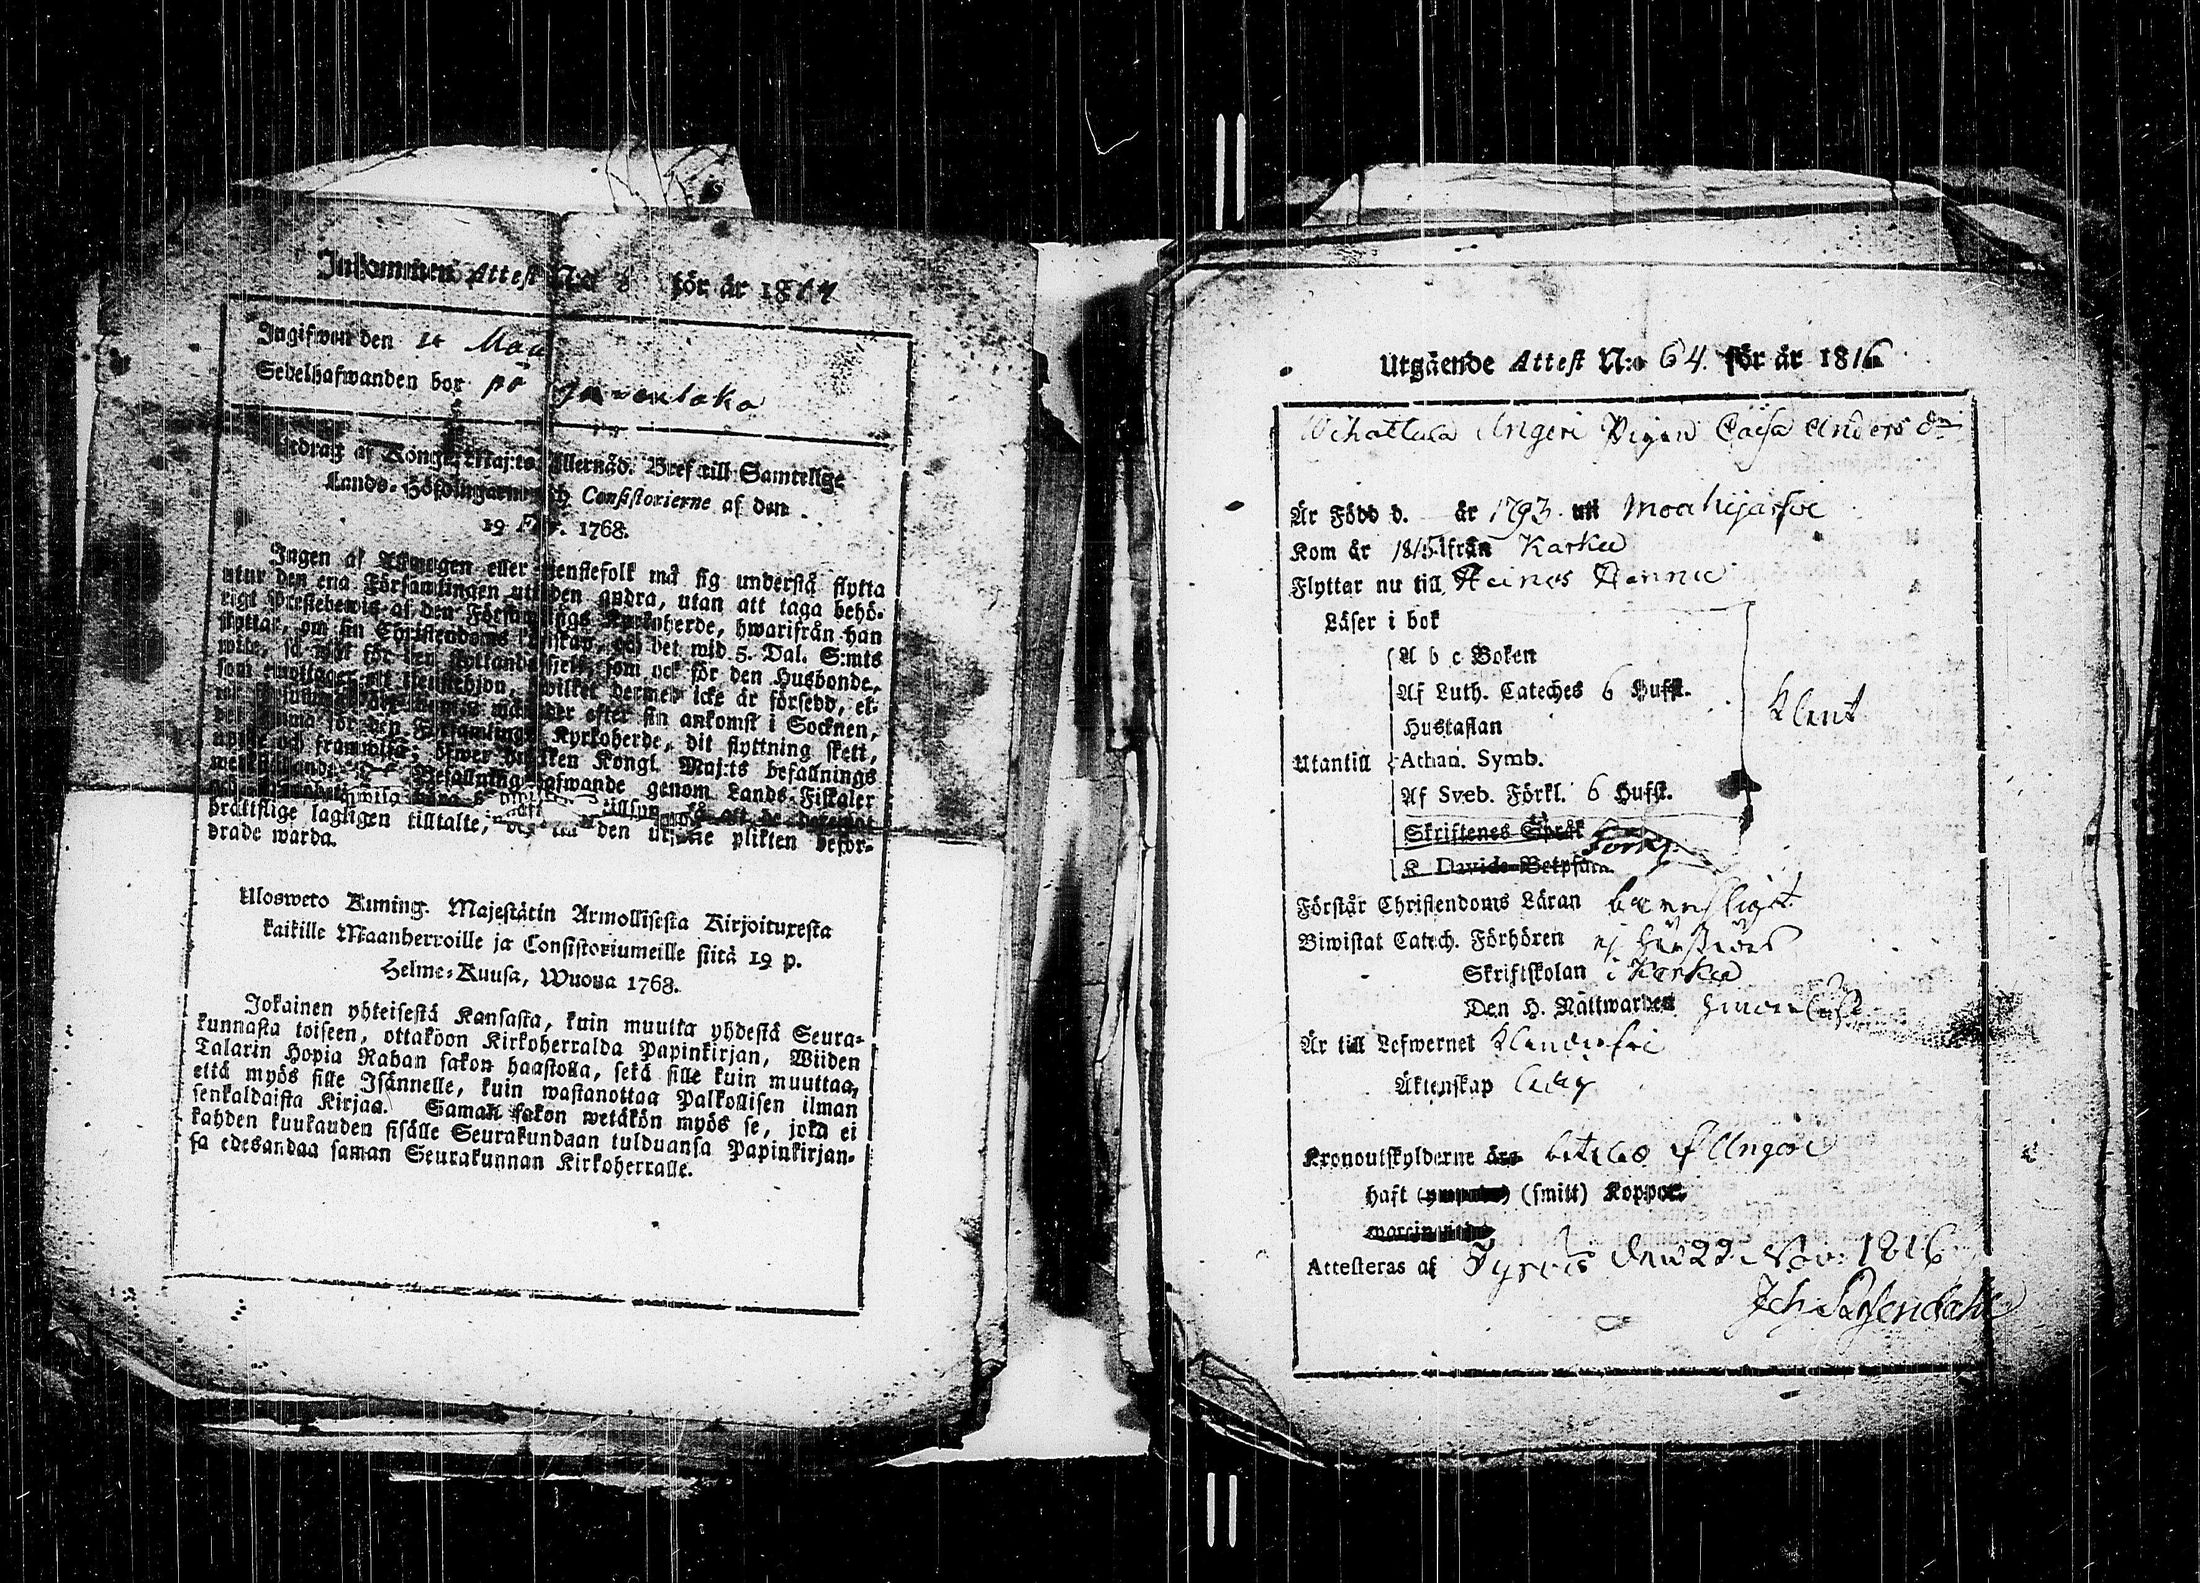 Inkommen Attest N:o 8 för år 1817
Ingifwen den 14 Maii
Sedelhafwanden bor på
Utdrag af Kongl. Maj:ts Allernåd. Bref till Samtelige
Lands-Höfdingarne och Consistorierne af den
19 Febr. 1768.
Ingen af Allmogen eller tjenstefolk må sig understå flytta
utur den ena Församlingen uti den andra, utan att taga behö-
rigt Prestebewis af den Församlings Kyrkoherde, hwarifrån han
flyttar, om sin Christendoms kunskap, och det wid 5. Dal. S:mts
wite, så wäl för den flyttande sjelf, som ock för den Husbonde,
som emottager ett tjenstehjon, hwilket dermed icke är försedd, el-
efter sin ankomst i Socknen,
för den Församlings Kyrkoherde, dit flyttning skett,
och framwisa; öfwer hwilken Kongl. Maj:ts befallnings
Befallningshafwande genom Lands-Fiskaler
brottslige lagligen tilltalte, den plikten befor-
drade warda.
Ulosweto Kuning. Majestätin Armollisesta Kirjoituxesta
kaikille Maanherroille ja Consistoriumeille siitä 19 p.
Helme-Kuusa, Wuona 1768.
Jokainen yhteisestä Kansasta, kuin muutta yhdestä Seura-
kunnasta toiseen, ottakoon Kirkoherralda Papinkirjan, Wiiden
Talarin Hopia Rahan sakon haastolla, sekä sille kuin muuttaa,
että myös sille Isännelle, kuin wastanottaa Palkollisen ilman
senkaldaista Kirjaa. Saman sakon wetäkön myös se, joka ei
kahden kuukauden sisälle Seurakundaan tulduansa Papinkirjan-
sa edesandaa saman Seurakunnan Kirkoherralle.
Utgående Attest N:o 64. för år 1816
Wihattula Angeri Pigan Caisa Anders dr
Är Född d. år 1793 uti Mouhijärfvi
Kom år 1815 ifrån Karku
Flyttar nu till
Läser i bok
A b c Boken
Af Luth. Cateches 6 Hufst.
Hustaflan
Klent
Utantill Athan. Symb.
Af Sveb. Förkl. 6 Hufst.
Skriftenes Språk
K Davids Botpsalm.
Förstår Christendoms Läran
Biwistat Catech. Förhören
Skriftskolan i Karku
Den H. Nattwarden
Är till Lefwernet
Äktenskap ledig
Kronoutskylderne äro
haft (ympade) (smitt) Koppor.
Attesteras af Tyrvis den 22 Nov. 1816